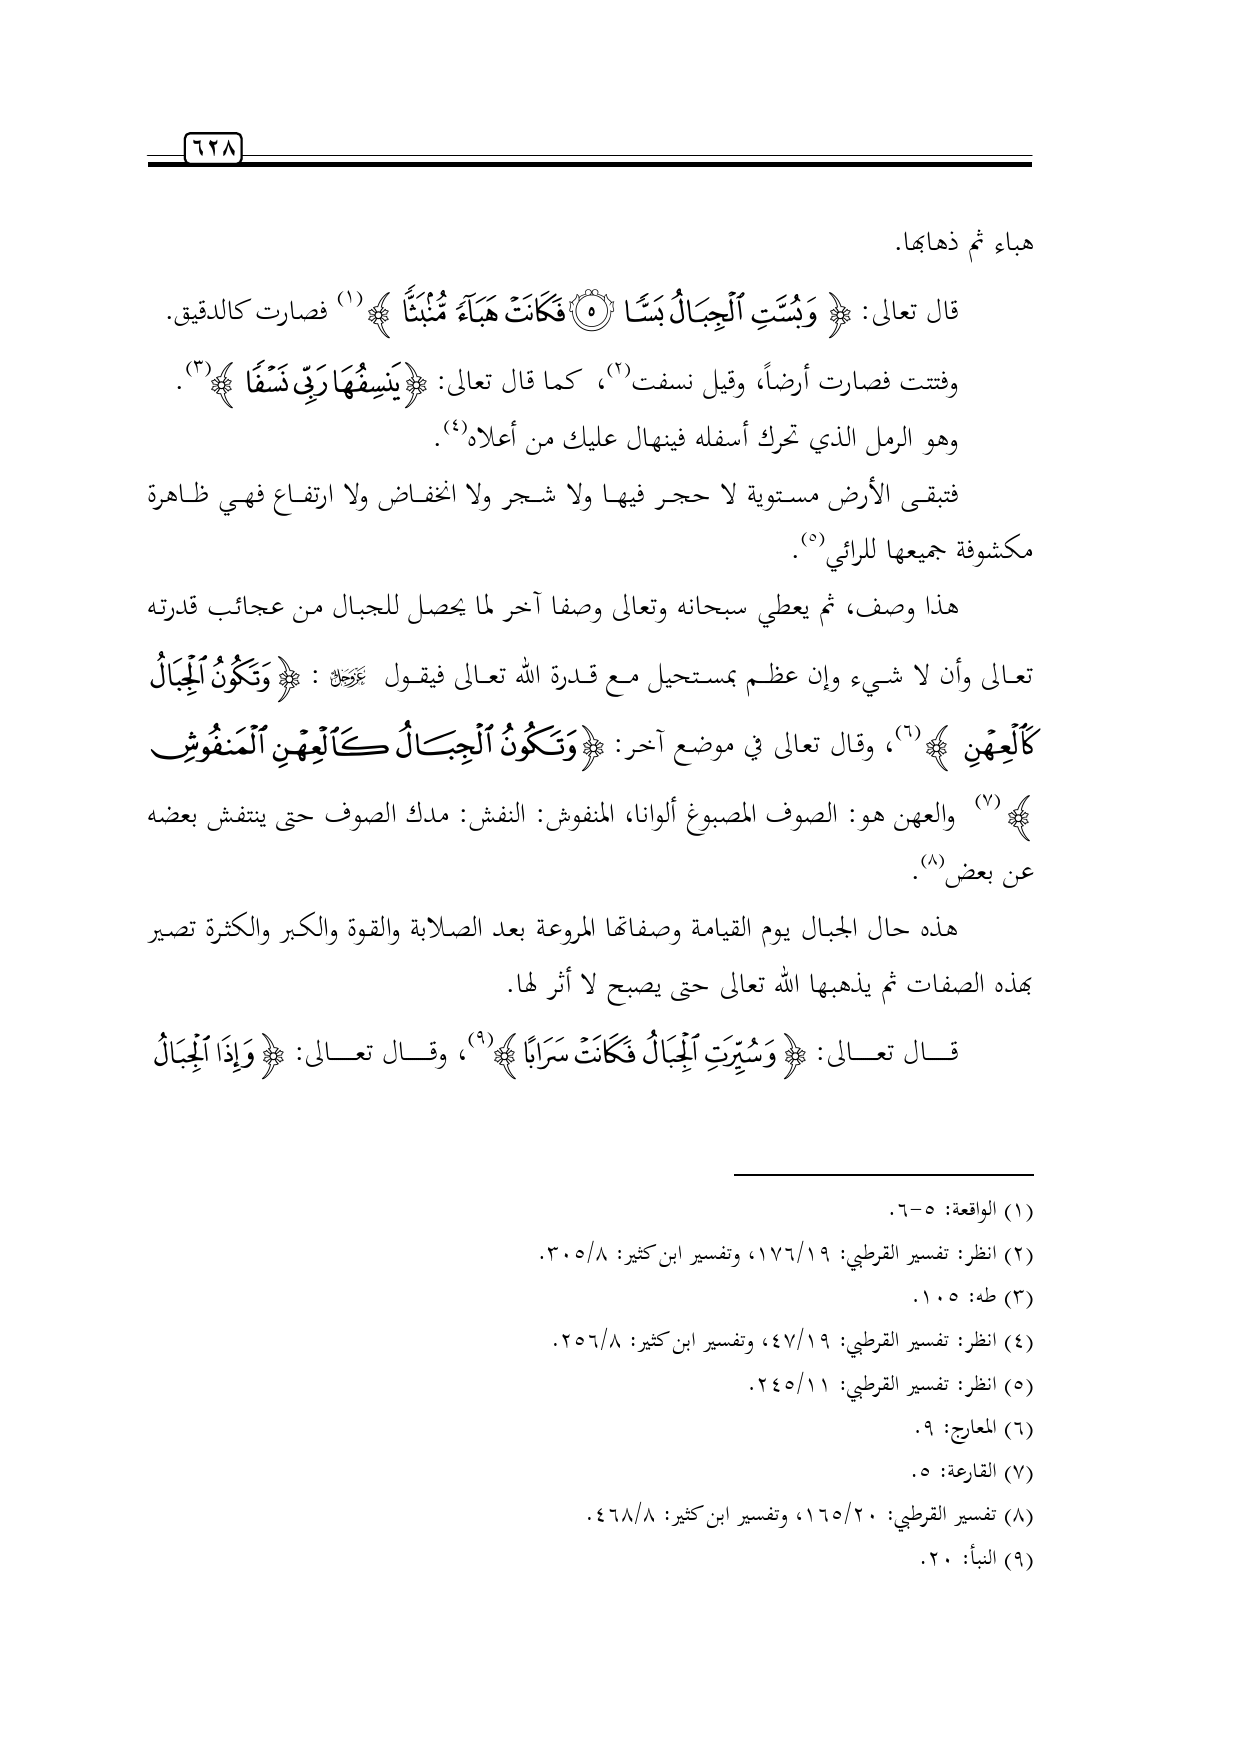 ٦٢٨
هباء ثم ذهابها.
قال تعالى: ﴿ وَبُسَّتِ ٱلْجِبَالُ بَسًّا ۝٥ فَكَانَتْ هَبَآءً مُّنۢبَثًّا ﴾(١) فصارت كالدقيق.
وفتتت فصارت أرضاً، وقيل نسفت(٢)، كما قال تعالى: ﴿يَنسِفُهَا رَبِّى نَسْفًا ﴾(٣).
وهو الرمل الذي تحرك أسفله فينهال عليك من أعلاه(٤).
فتبقى الأرض مستوية لا حجر فيها ولا شجر ولا انخفاض ولا ارتفاع فهي ظاهرة
مكشوفة جميعها للرائي(٥).
هذا وصف، ثم يعطي سبحانه وتعالى وصفا آخر لما يحصل للجبال من عجائب قدرته
تعالى وأن لا شيء وإن عظم بمستحيل مع قدرة الله تعالى فيقول عَزَّوَجَلَّ : ﴿ وَتَكُونُ ٱلْجِبَالُ
كَٱلْعِهْنِ ﴾(٦)، وقال تعالى في موضع آخر: ﴿وَتَكُونُ ٱلْجِبَالُ كَٱلْعِهْنِ ٱلْمَنفُوشِ
﴾(٧) والعهن هو: الصوف المصبوغ ألوانا، المنفوش: النفش: مدك الصوف حتى ينتفش بعضه
عن بعض(٨).
هذه حال الجبال يوم القيامة وصفاتها المروعة بعد الصلابة والقوة والكبر والكثرة تصير
بهذه الصفات ثم يذهبها الله تعالى حتى يصبح لا أثر لها.
قال تعالى: ﴿ وَسُيِّرَتِ ٱلْجِبَالُ فَكَانَتْ سَرَابًا ﴾(٩)، وقال تعالى: ﴿ وَإِذَا ٱلْجِبَالُ
(١) الواقعة: ٥-٦.
(٢) انظر: تفسير القرطبي: ١٧٦/١٩، وتفسير ابن كثير: ٣٠٥/٨.
(٣) طه: ١٠٥.
(٤) انظر: تفسير القرطبي: ٤٧/١٩، وتفسير ابن كثير: ٢٥٦/٨.
(٥) انظر: تفسير القرطبي: ٢٤٥/١١.
(٦) المعارج: ٩.
(٧) القارعة: ٥.
(٨) تفسير القرطبي: ١٦٥/٢٠، وتفسير ابن كثير: ٤٦٨/٨.
(٩) النبأ: ٢٠.